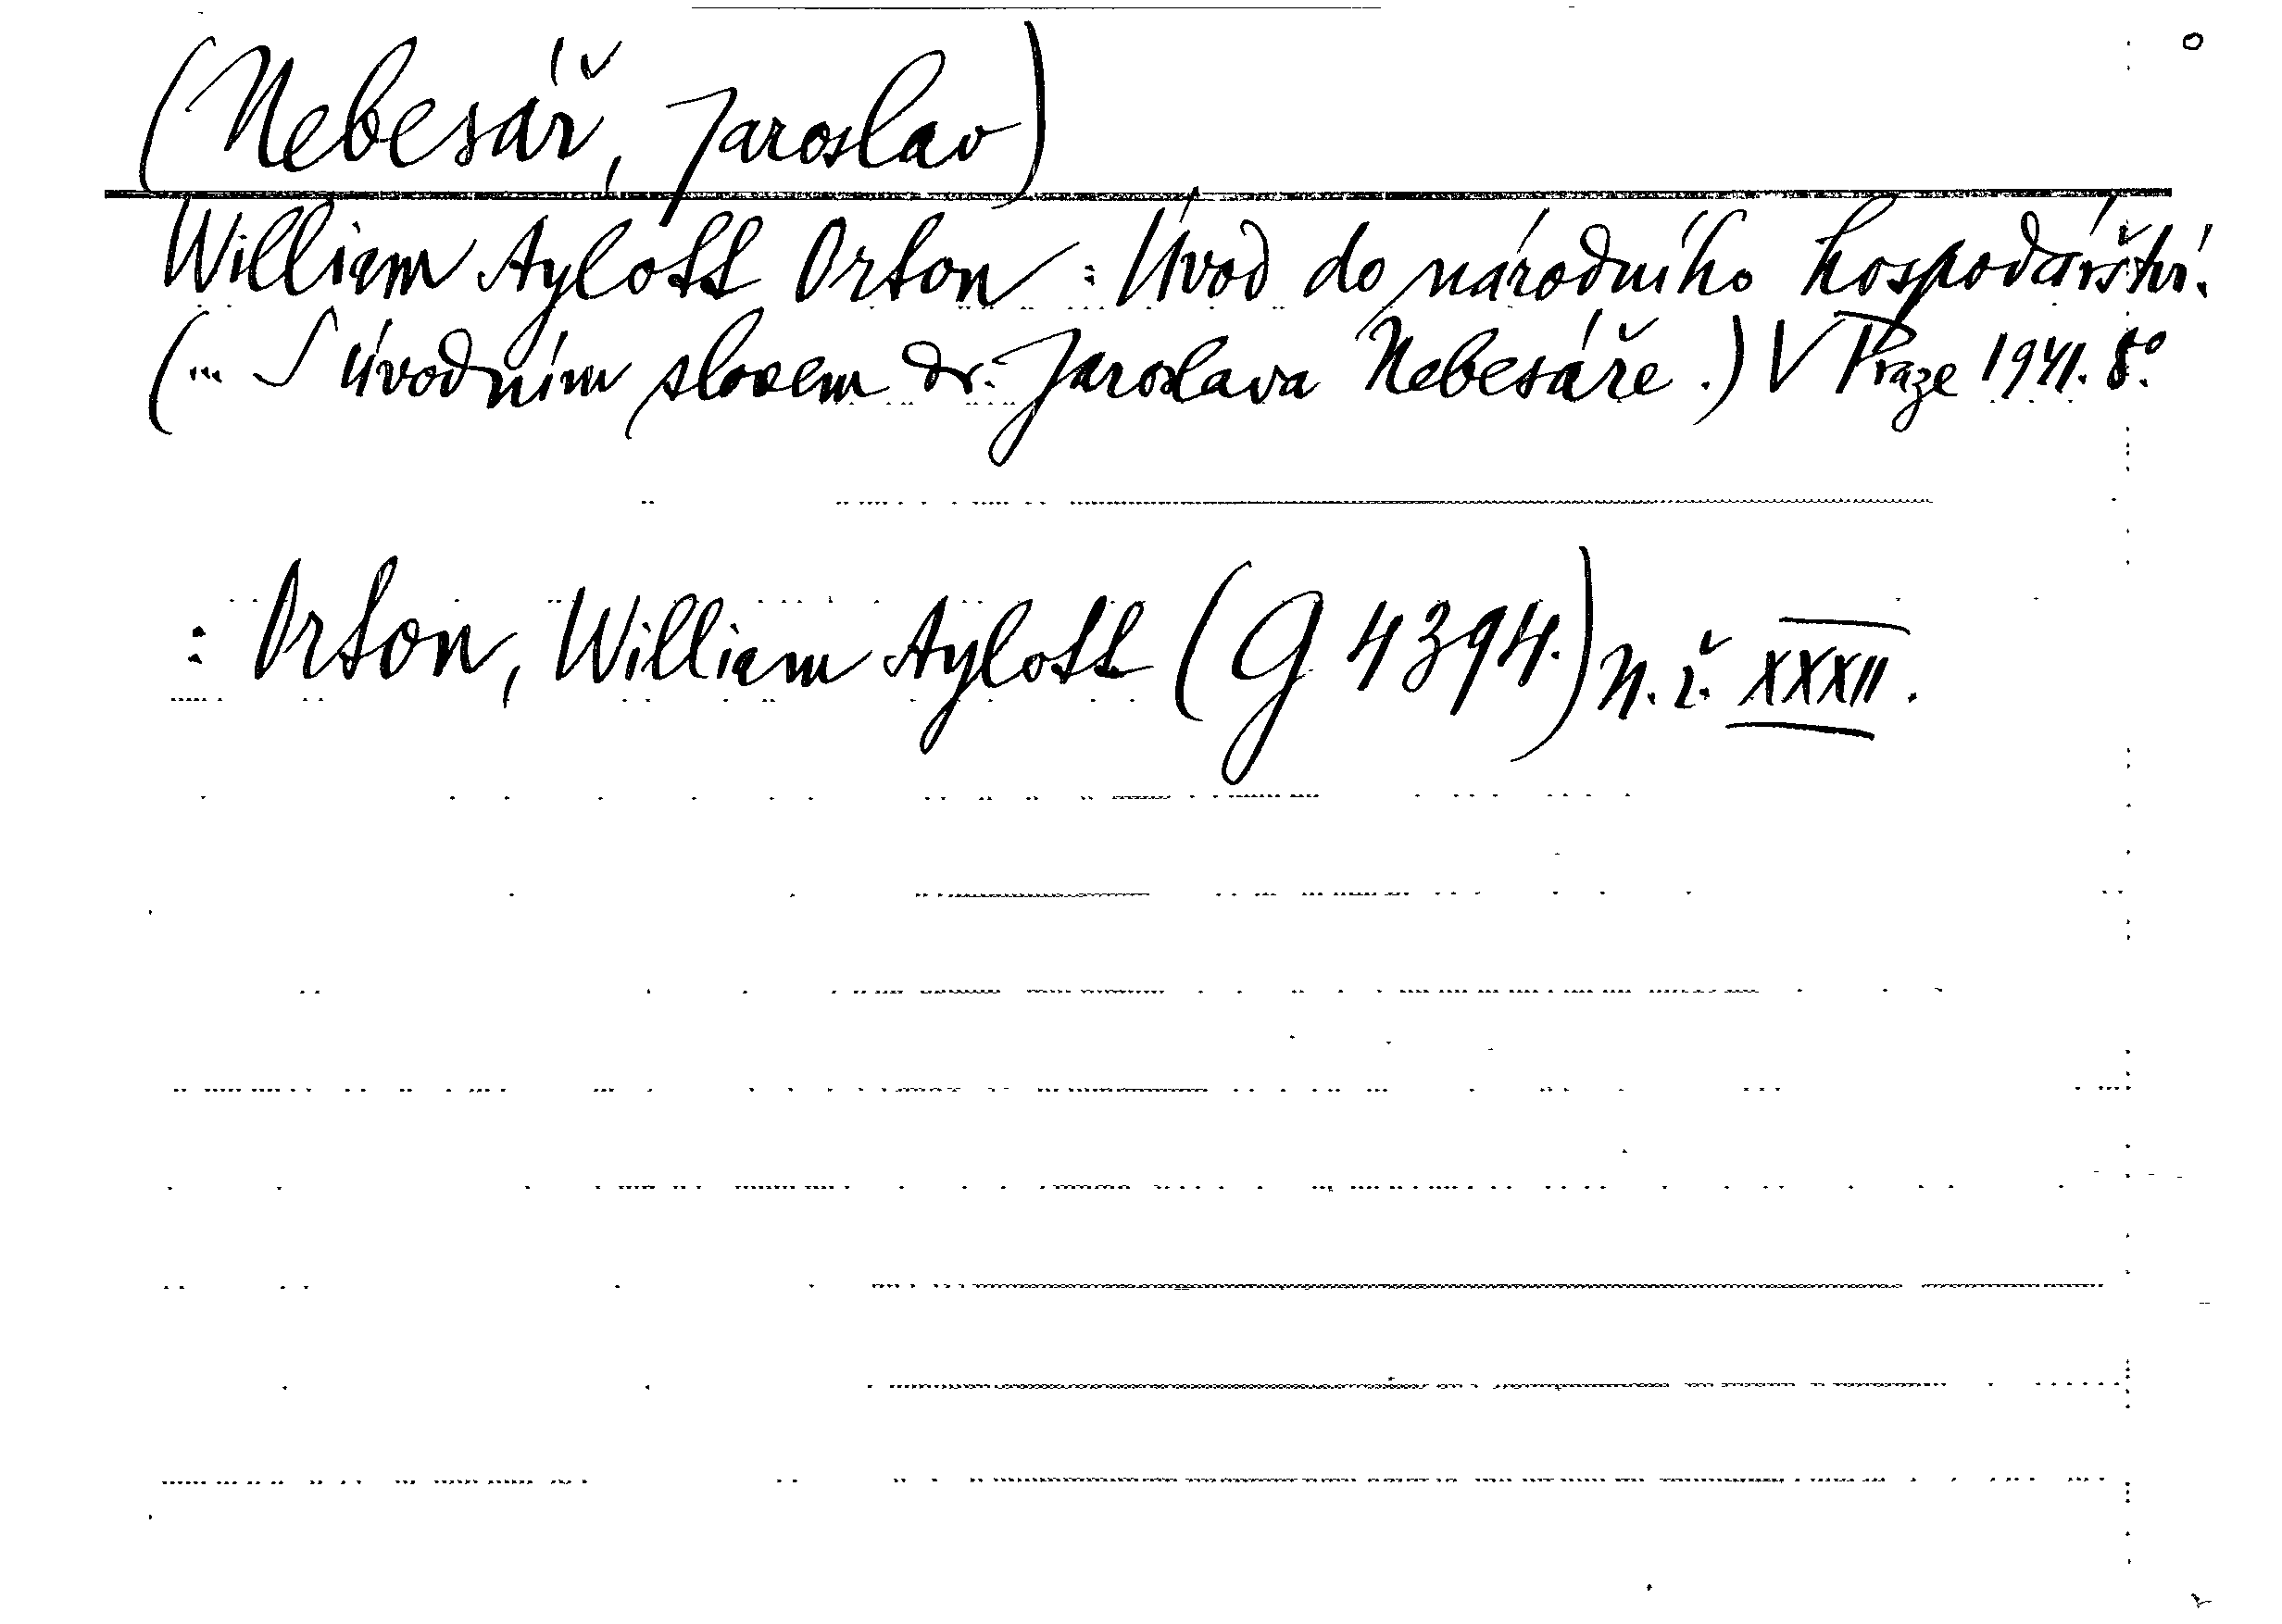 (Nebesář, Jaroslav)
William Aylott Orton : Úvod do národního hospodářství.
(... S úvodním slovem dr. Jaroslava Nebesáře.) V Praze 1941. 8°.
: Orton, William Aylott (G 4394.) N. ř. XXXII.